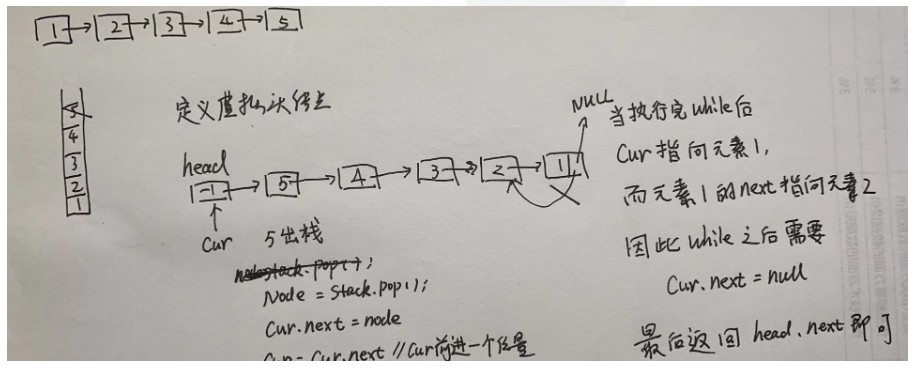 1 → 2 → 3 → 4 → 5
5
4
3
2
1
定义虚拟头结点
head
-1 → 5 → 4 → 3 → 2 → 1
NULL
Cur
5出栈
Node = Stack.pop();
Cur.next = node
Cur = Cur.next //Cur前进一个位置
当执行完while后
Cur指向元素1,
而元素1的next指向元素2
因此while之后需要
Cur.next = null
最后返回 head.next 即可